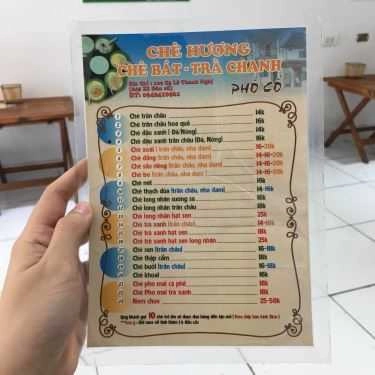 CHÈ HƯƠNG
CHÈ BÁT - TRÀ CHANH
PHỐ CỔ
Chè trân châu 14k
Chè trân châu hoa quả 16k
Chè đậu xanh ( Đá/Nóng) 14k
Chè đậu xanh trân châu (Đá, Nóng) 16k
Chè xoài ( trân châu, nha đam) 16-20k
Chè đắng (trân châu, nha đam) 14-16-20k
Chè sầu riêng (trân châu, nha đam) 14-16-20k
Chè bơ (trân châu, nha đam) 14-16-20k
Chè nết 16k
Chè thạch dừa (trân châu, nha đam) 14-16k
Chè long nhãn sương sa 16k
Chè long nhãn trân châu 18k
Chè long nhãn hạt sen 25k
Chè trà xanh (trân châu) 14-16k
Chè trà xanh hạt sen 18k
Chè trà xanh hạt sen long nhãn 25k
Chè sen (trân châu) 16-18k
Chè thập cẩm 18k
Chè bưởi (trân châu) 16-18k
Chè khoai 16k
Chè pho mai cà phê 18k
Chè Pho mai trà xanh 18k
Nem chua 25-50k